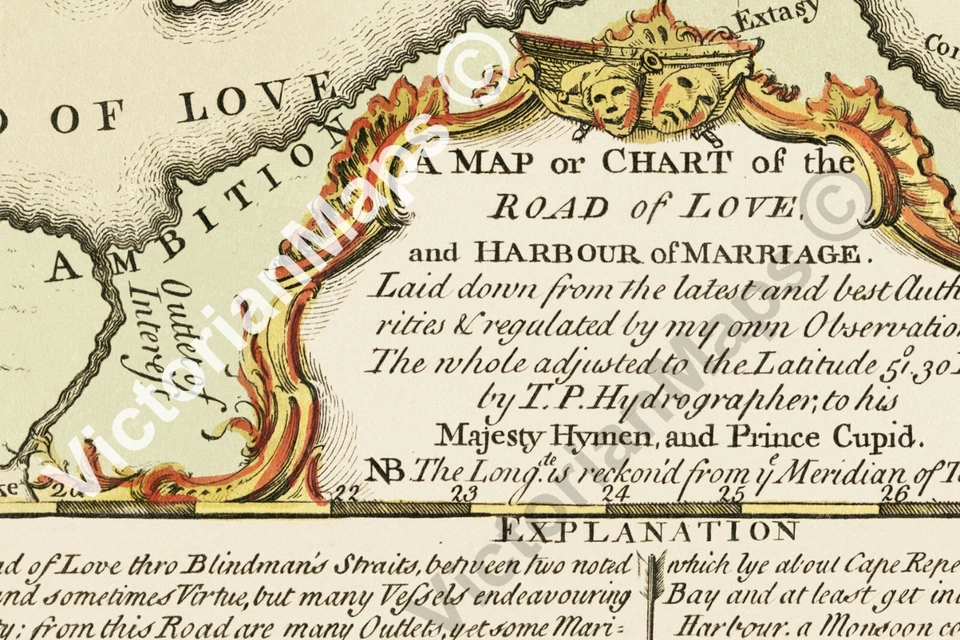 Extasy
OF LOVE
AMBITION
Outlet of
Interest
A MAP or CHART of the
ROAD of LOVE,
and HARBOUR of MARRIAGE.
Laid down from the latest and best Auth
rities & regulated by my own Observatio
The whole adjusted to the Latitude 51°.30
by T.P. Hydrographer, to his
Majesty Hymen, and Prince Cupid.
NB The Longte. is reckon'd from ye Meridian of
22 23 24 25 26
EXPLANATION
of Love thro Blindman's Straits, between two noted
and sometimes Virtue, but many Vessels endeavouring
from this Road are many Outlets, yet some Mari=
which lye about Cape Repe
Bay and at least get in
Harbour. a Monsoon
VictorianMaps ©
VictorianMaps ©